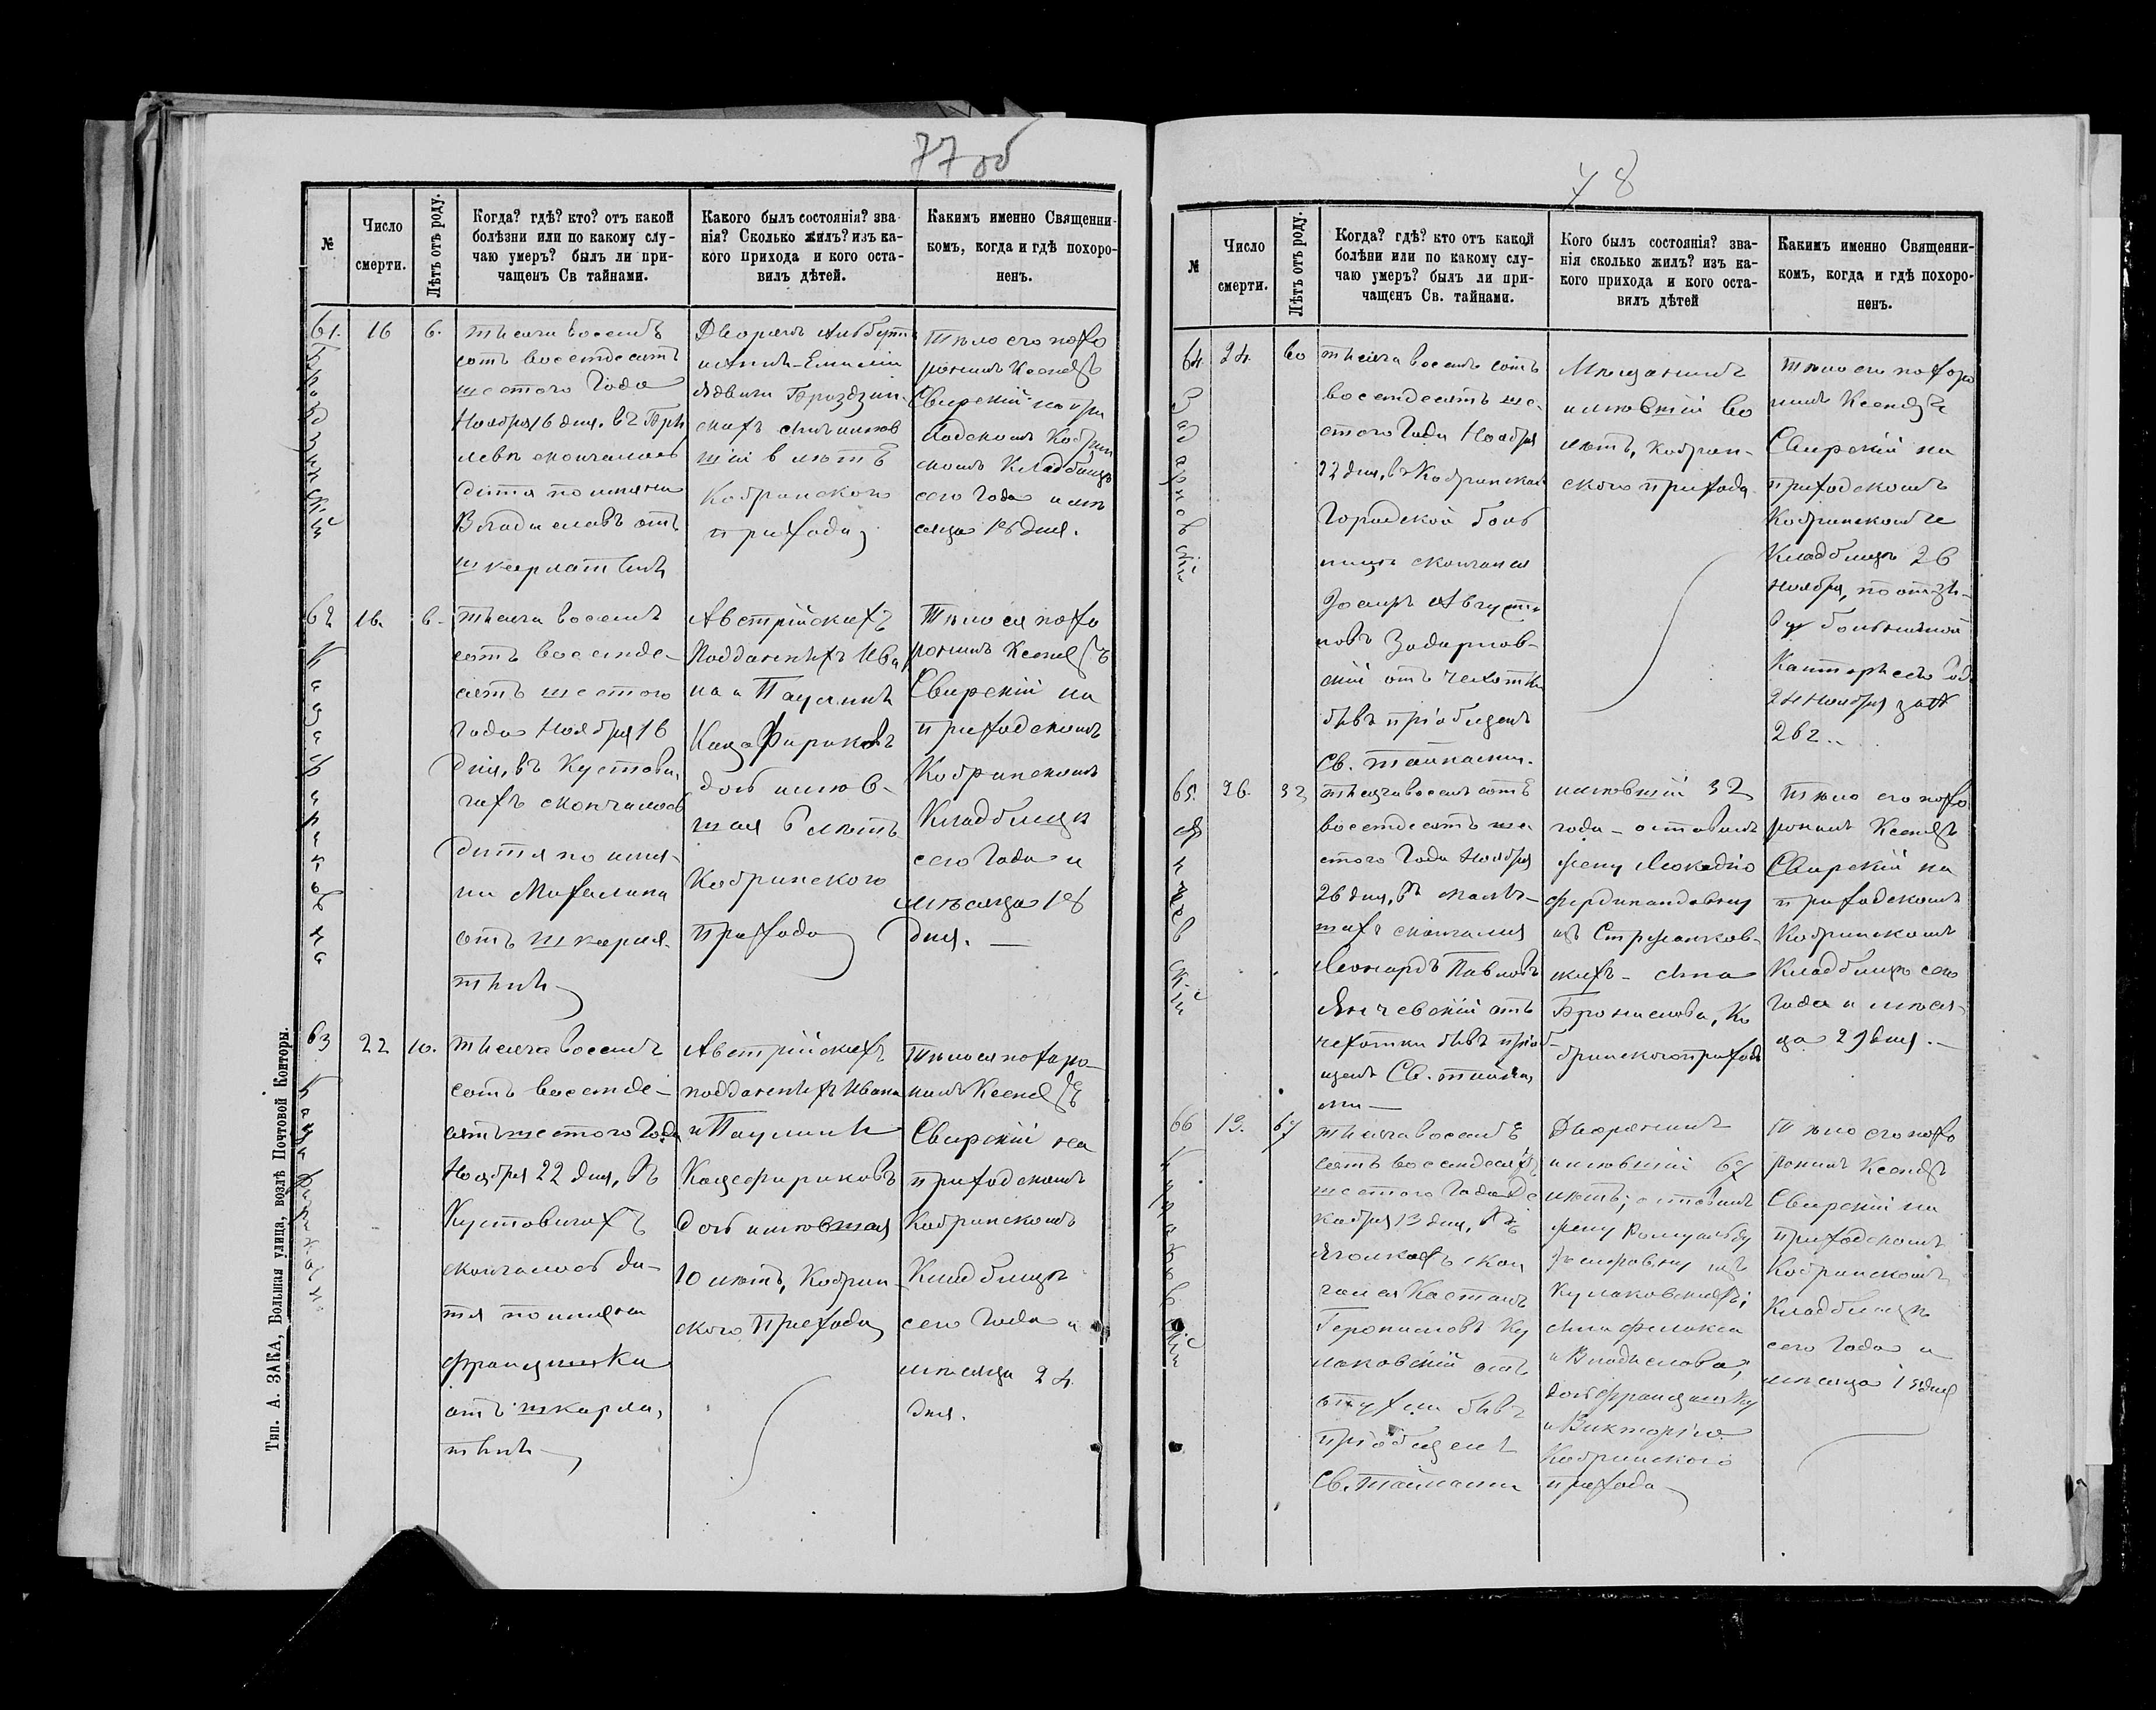 77 об
№
Число
смерти.
Лѣтъ отъ роду.
Когда? гдѣ? кто? отъ какой
болѣзни или по какому слу-
чаю умеръ? былъ ли при-
чащенъ Св тайнами.
Какого былъ состоянія? зва-
нія? Сколько жилъ? изъ ка-
кого прихода и кого оста-
вилъ дѣтей.
Какимъ именно Священни-
комъ, когда и гдѣ похоро-
ненъ.
61.
16
6.
тысяча восемь
сотъ восемдесятъ
шестого Года
Ноября 16 дня, въ
скончалось
дитя по имяни
Владиславъ отъ
шкарлатины
Дворянъ Альберта
и Анны-Емиліи
Ядвиги Броздзин-
скихъ сынъ имѣв
шій 6 лѣтъ
Кобринского
прихода
Тѣло его похо
ронилъ Ксендзъ
Свирскій на при
ходскомъ Кобрин
скомъ Кладбищѣ
сего Года и мѣ
сяца 18 дня.
62
16.
6.
Кацафирикова
тысяча восемь
сотъ восемде-
сятъ шестого
Года Ноября 16
дня, въ Кустови
чахъ скончалось
дитя по имя-
ни Михалина
отъ шкарла-
тины
Австрійскихъ
Подданныхъ Ива
на и Паулины
Кацафириковъ
дочь имѣв-
шая 6 лѣтъ
Кобринского
Прихода
Тѣло ея похо
ронилъ Ксендзъ
Свирскій на
приходскомъ
Кобринскомъ
Кладбищѣ
сего Года и
мѣсяца 18
дня. —
63
22
10.
тысяча восемь
сотъ восемде-
сятъ шестого Года
Ноября 22 дня, въ
Кустовичахъ
скончалось ди-
тя по имяни
Францишка
отъ шкарла,
тины
Австрійскихъ
подданныхъ Ивана
и Паулины
Кацефириковъ
дочь имѣвшая
10 лѣтъ, Кобрин-
ского Прихода
Тѣло ея похоро-
нилъ Ксендзъ
Свирскій на
приходскомъ
Кобринскомъ
Кладбищѣ
сего Года и
мѣсяца 24
дня.
Тип. А. ЗАКА, Большая улица, возлѣ Почтовой Конторы.
78
№
Число
смерти.
Лѣтъ отъ роду.
Когда? гдѣ? кто отъ какой
болѣни или по какому слу-
чаю умеръ? былъ ли при-
чащенъ Св. тайнами.
Кого былъ состоянія? зва-
нія сколько жилъ? изъ ка-
кого прихода и кого оста-
вилъ дѣтей
Какимъ именно Священни-
комъ, когда и гдѣ похоро-
ненъ.
64.
24.
60
Задарновскій
тысяча восемь сотъ
восемдесятъ ше-
стого Года Ноября
22 дня, въ Кобринской
Городской боль
ницѣ скончался
Іосифъ Августи
новъ Задарнов-
скій отъ чахотки
бывъ пріобщенъ
Св. тайнами.
Мѣщанинъ
имѣвшій 60
лѣтъ, Кобрин-
ского прихода
Тѣло его похоро
нилъ Ксендзъ
Свирскій на
приходскомъ
Кобринскомъ
Кладбищѣ 26
Ноября, по отзы-
ву больничной
Канторы сего Год
24 Ноября за №
262..
65.
26.
32
Янчевскій
тысяча восемь сотъ
восемдесятъ ше-
стого Года Ноября
26 дня, въ
скончался
Леонардъ Павловъ
Янчевскій отъ
чахотки бывъ пріоб-
щенъ Св. тайна,
ми —
имѣвшій 32
года — оставилъ
жену Леокадію
Фердинандовну
изъ
скихъ — сына
Бронислава, Ко
бринского прихода
Тѣло его похо
ронилъ Ксендзъ
Свирскій на
приходскомъ
Кобринскомъ
Кладбищѣ сего
Года и мѣся-
ца 29 дня. —
66
13.
67
Кулаковскій
тысяча восемь
сотъ восемдесятъ
шестого Года Де
кабря 13 дня, въ
скон
чался Каетанъ
Геронимовъ Ку
лаковскій отъ
опухли бывъ
пріобщенъ
Св. тайнами
Дворянинъ
имѣвшій 67
лѣтъ; оставилъ
жену Ромуальду
Іосифовну изъ
Кулаковскихъ;
сына Феликса
и Владислава;
дочь Францишку
и Викторію
Кобринского
прихода
Тѣло его похо
ронилъ Ксендзъ
Свирскій на
приходскомъ
Кобринскомъ
Кладбищѣ
сего Года и
мѣсяца 15 дня